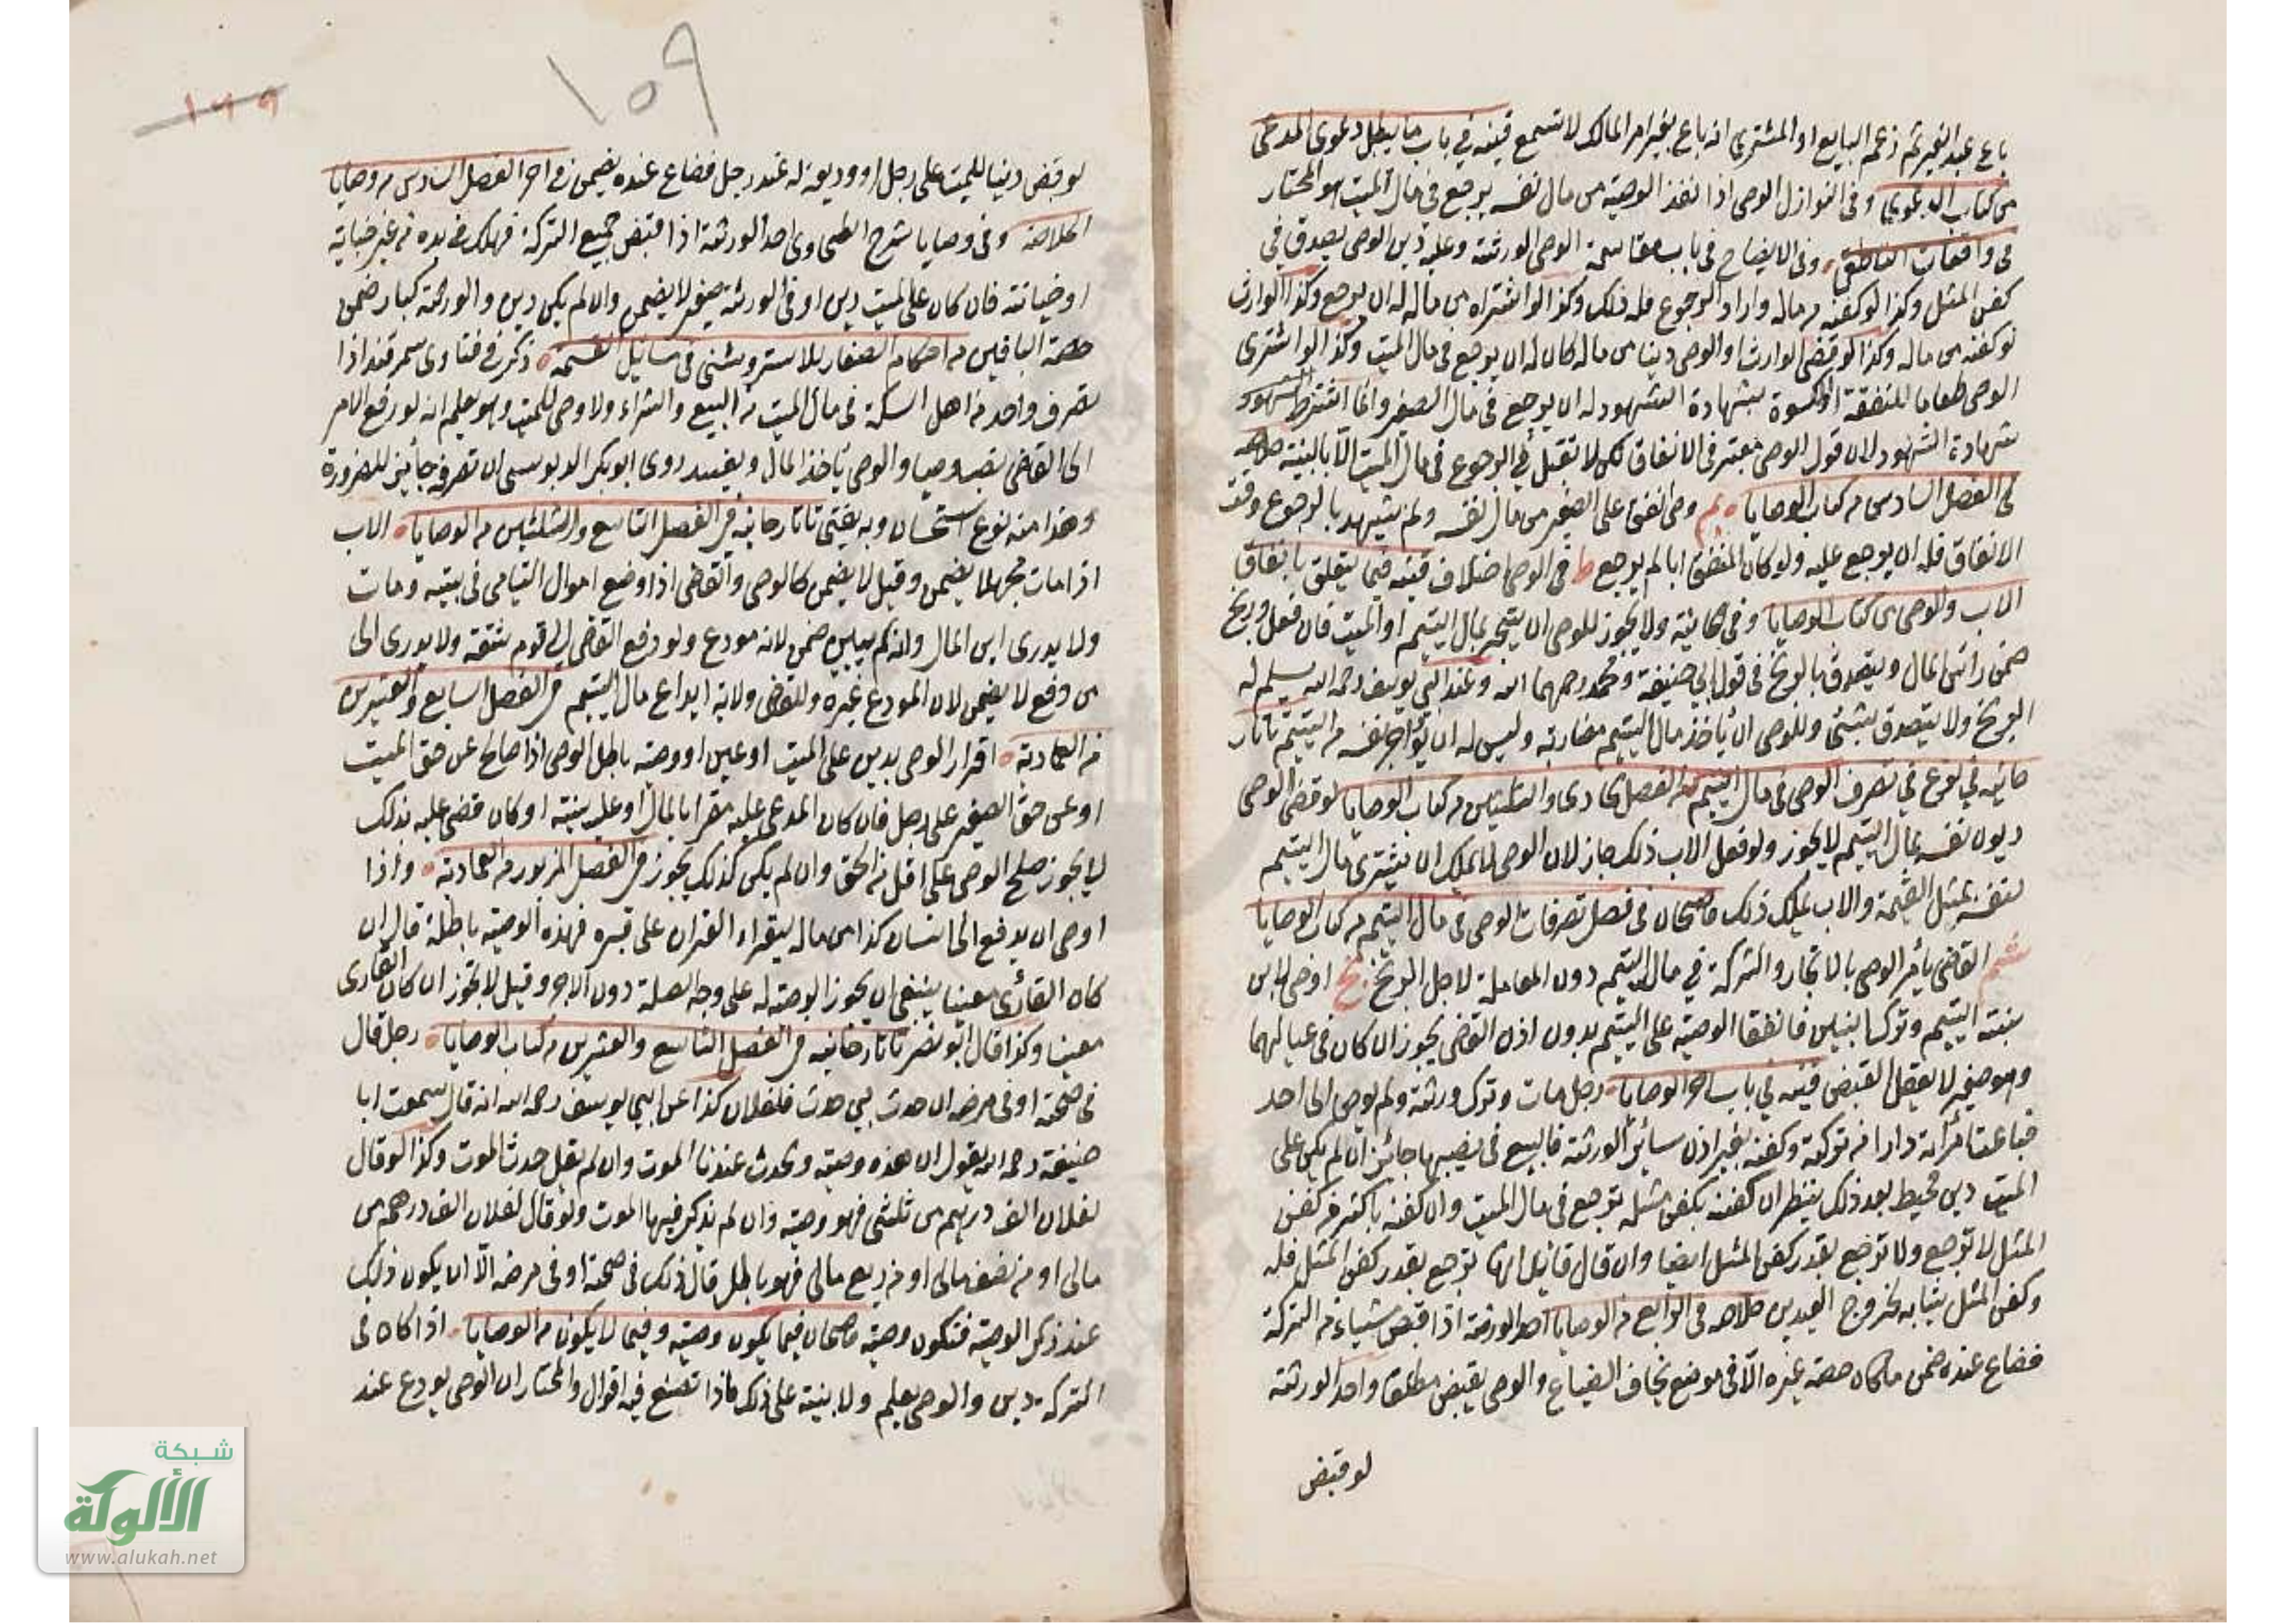 باع عبد الغير ثم زعم البايع او المشتري انه باع بغير امر المالك لا تسمع قنيه في باب ما يبطل دعوى المدعى
من كتاب الدعوى وفى النوازل الوصى اذا نفذ الوصية من مال نفسه يرجع فى مال الميت هو المختار
فى واقعات الناطفى وفى الايضاح فى باب مقاسمة الوصى الورثة وعليه دين الوصى يصدق فى
كفن المثل وكذا لو كفنه من ماله واراد الرجوع فله ذلك وكذا لو اشتراه من ماله له ان يرجع وكذا الوارث
لو كفنه من ماله وكذا لو قضى الوارث او الوصى دينا من ماله كان له ان يرجع فى مال الميت وكذا لو اشترى
الوصى طعاما للنفقة او الكسوة بشهادة الشهود له ان يرجع فى مال الصغير وانما اشترط الشهود
شهادة الشهود لان قول الوصى معتبر فى الانفاق لكن لا تقبل فى الرجوع فى مال الميت الا بالبينة خلاصه
فى الفصل السادس من كتاب الوصايا بم وصى انفق على الصغير من مال نفسه ولم يشهد بالرجوع وقت
الانفاق فله ان يرجع عليه ولو كان المنفق ابا لم يرجع ط فى الوصى اختلاف قنيه فيما يتعلق بانفاق
الاب والوصى من كتاب الوصايا وفى الخانية ولا يجوز للوصى ان يتجر بمال اليتيم او الميت فان فعل وربح
ضمن راس المال ويتصدق بالربح فى قول ابى حنيفة ومحمد رحمهما الله وعند ابى يوسف رحمه الله يسلم له
الربح ولا يتصدق بشئ وللوصى ان ياخذ مال اليتيم مضاربة وليس له ان يؤاجر نفسه من اليتيم تاتار
خانيه فى نوع فى تصرف الوصى فى مال اليتيم من الفصل الحادى والثلثين من كتاب الوصايا لو قضى الوصى
ديون نفسه بمال اليتيم لا يجوز ولو فعل الاب ذلك جاز لان الوصى لا يملك ان يشترى مال اليتيم
لنفسه بمثل القيمة والاب يملك ذلك قاضيخان فى فصل تصرفات الوصى فى مال اليتيم من كتاب الوصايا
القاضى يأمر الوصى بالاتجار والشركة فى مال اليتيم دون المعاملة لاجل الربح بخ اوصى لابن
بنته اليتيم وتركا بنين فانفقا الوصية على اليتيم بدون اذن القاضى يجوز ان كان فى عيالهما
وهو صغير لا يعقل القبض قنيه فى باب من الوصايا رجل مات وترك ورثة ولم يوص الى احد
فباعت امرأته دارا من تركته وكفنه بغير اذن سائر الورثة فالبيع فى نصيبها جائز ان لم يكن على
الميت دين محيط بعد ذلك ينظر ان كفنه بكفن مثله ترجع فى مال الميت وان كفنه باكثر من كفن
المثل لا ترجع ولا ترجع بقدر كفن المثل ايضا وان قال قائل انها ترجع بقدر كفن المثل فله
وكفن المثل ثيابه لخروج العيدين خلاصه فى الرابع من الوصايا احد الورثة اذا قبض شياء من التركة
فضاع عنده ضمن ما كان حصة غيره الا فى موضع يخاف الضياع والوصى يقبض مطلقا واحد الورثة
لو قبض
١٥٩
١٩٩
لو قبض دينا للميت على رجل او وديعة له عند رجل فضاع عنده يضمن فى اخر الفصل السادس من وصايا
الخلاصه وفى وصايا شرح الطحاوى احد الورثة اذا قبض جميع التركة فهلك فى يده من غير جنايته
او خيانته فان كان على الميت دين او فى الورثة صغير لا يضمن وان لم يكن دين والورثة كبار ضمن
حصة الباقين من احكام الصغار للاستروشنى فى مسائل القسمة ذكر فى فتاوى سمرقند اذا
تصرف واحد من اهل السكة فى مال الميت من البيع والشراء ولا وصى للميت وهو يعلم انه لو رفع الامر
الى القاضى نصب وصيا والوصى يأخذ المال ويفسد روى ابو بكر الدبوسى ان تصرفه جائز للضرورة
وهذا منه نوع استحسان وبه يفتى تاتارخانيه فى الفصل التاسع والثلثين من الوصايا الاب
اذا مات مجهلا يضمن وقيل لا يضمن كالوصى والقاضى اذا وضع اموال اليتامى فى بيته ومات
ولا يدرى اين المال وانه لم يبين ضمن لانه مودع ولو دفع القاضى الى قوم ثقة ولا يدرى الى
من دفع لا يضمن لان المودع غيره وللقاضى ولاية ايداع مال اليتيم فى الفصل السابع والعشرين
من العمادية اقرار الوصى بدين على الميت او عين او وصية باطل الوصى اذا صالح عن حق الميت
او عن حق الصغير على رجل فان كان المدعى عليه مقرا بالمال او عليه بينة او كان قضى عليه بذلك
لا يجوز صلح الوصى على اقل من الحق وان لم يكن كذلك يجوز فى الفصل المزبور من العمادية واذا
اوصى ان يدفع الى انسان كذا من ماله ليقراء القران على قبره فهذه الوصية باطلة قال ان
كان القارئ معينا ينبغى ان يجوز الوصية له على وجه الصلة دون الاجر وقيل لا تجوز ان كان القارى
معينا وكذا قال ابو نصر تاتارخانيه فى الفصل التاسع والعشرين من كتاب الوصايا رجل قال
فى صحته او فى مرضه ان حدث بى حدث فلفلان كذا عن ابى يوسف رحمه الله انه قال سمعت ابا
حنيفة رحمه الله يقول ان هذه وصية والحدث عندنا الموت وان لم يقل حدث الموت وكذا لو قال
لفلان الف درهم من ثلثى فهو وصية وان لم يذكر فيها الموت ولو قال لفلان الف درهم من
مالى او من نصف مالى او من ربع مالى فهو باطل قال ذلك فى صحته او فى مرضه الا ان يكون ذلك
عند ذكر الوصية فتكون وصية قاضيخان فيما يكون وصية وفيما لا يكون من الوصايا اذا كان فى
التركة دين والوصى يعلم ولا بينة على ذلك ماذا تصنع فيه اقوال والمختار ان الوصى يودع عند
شبكة
الألوكة
www.alukah.net